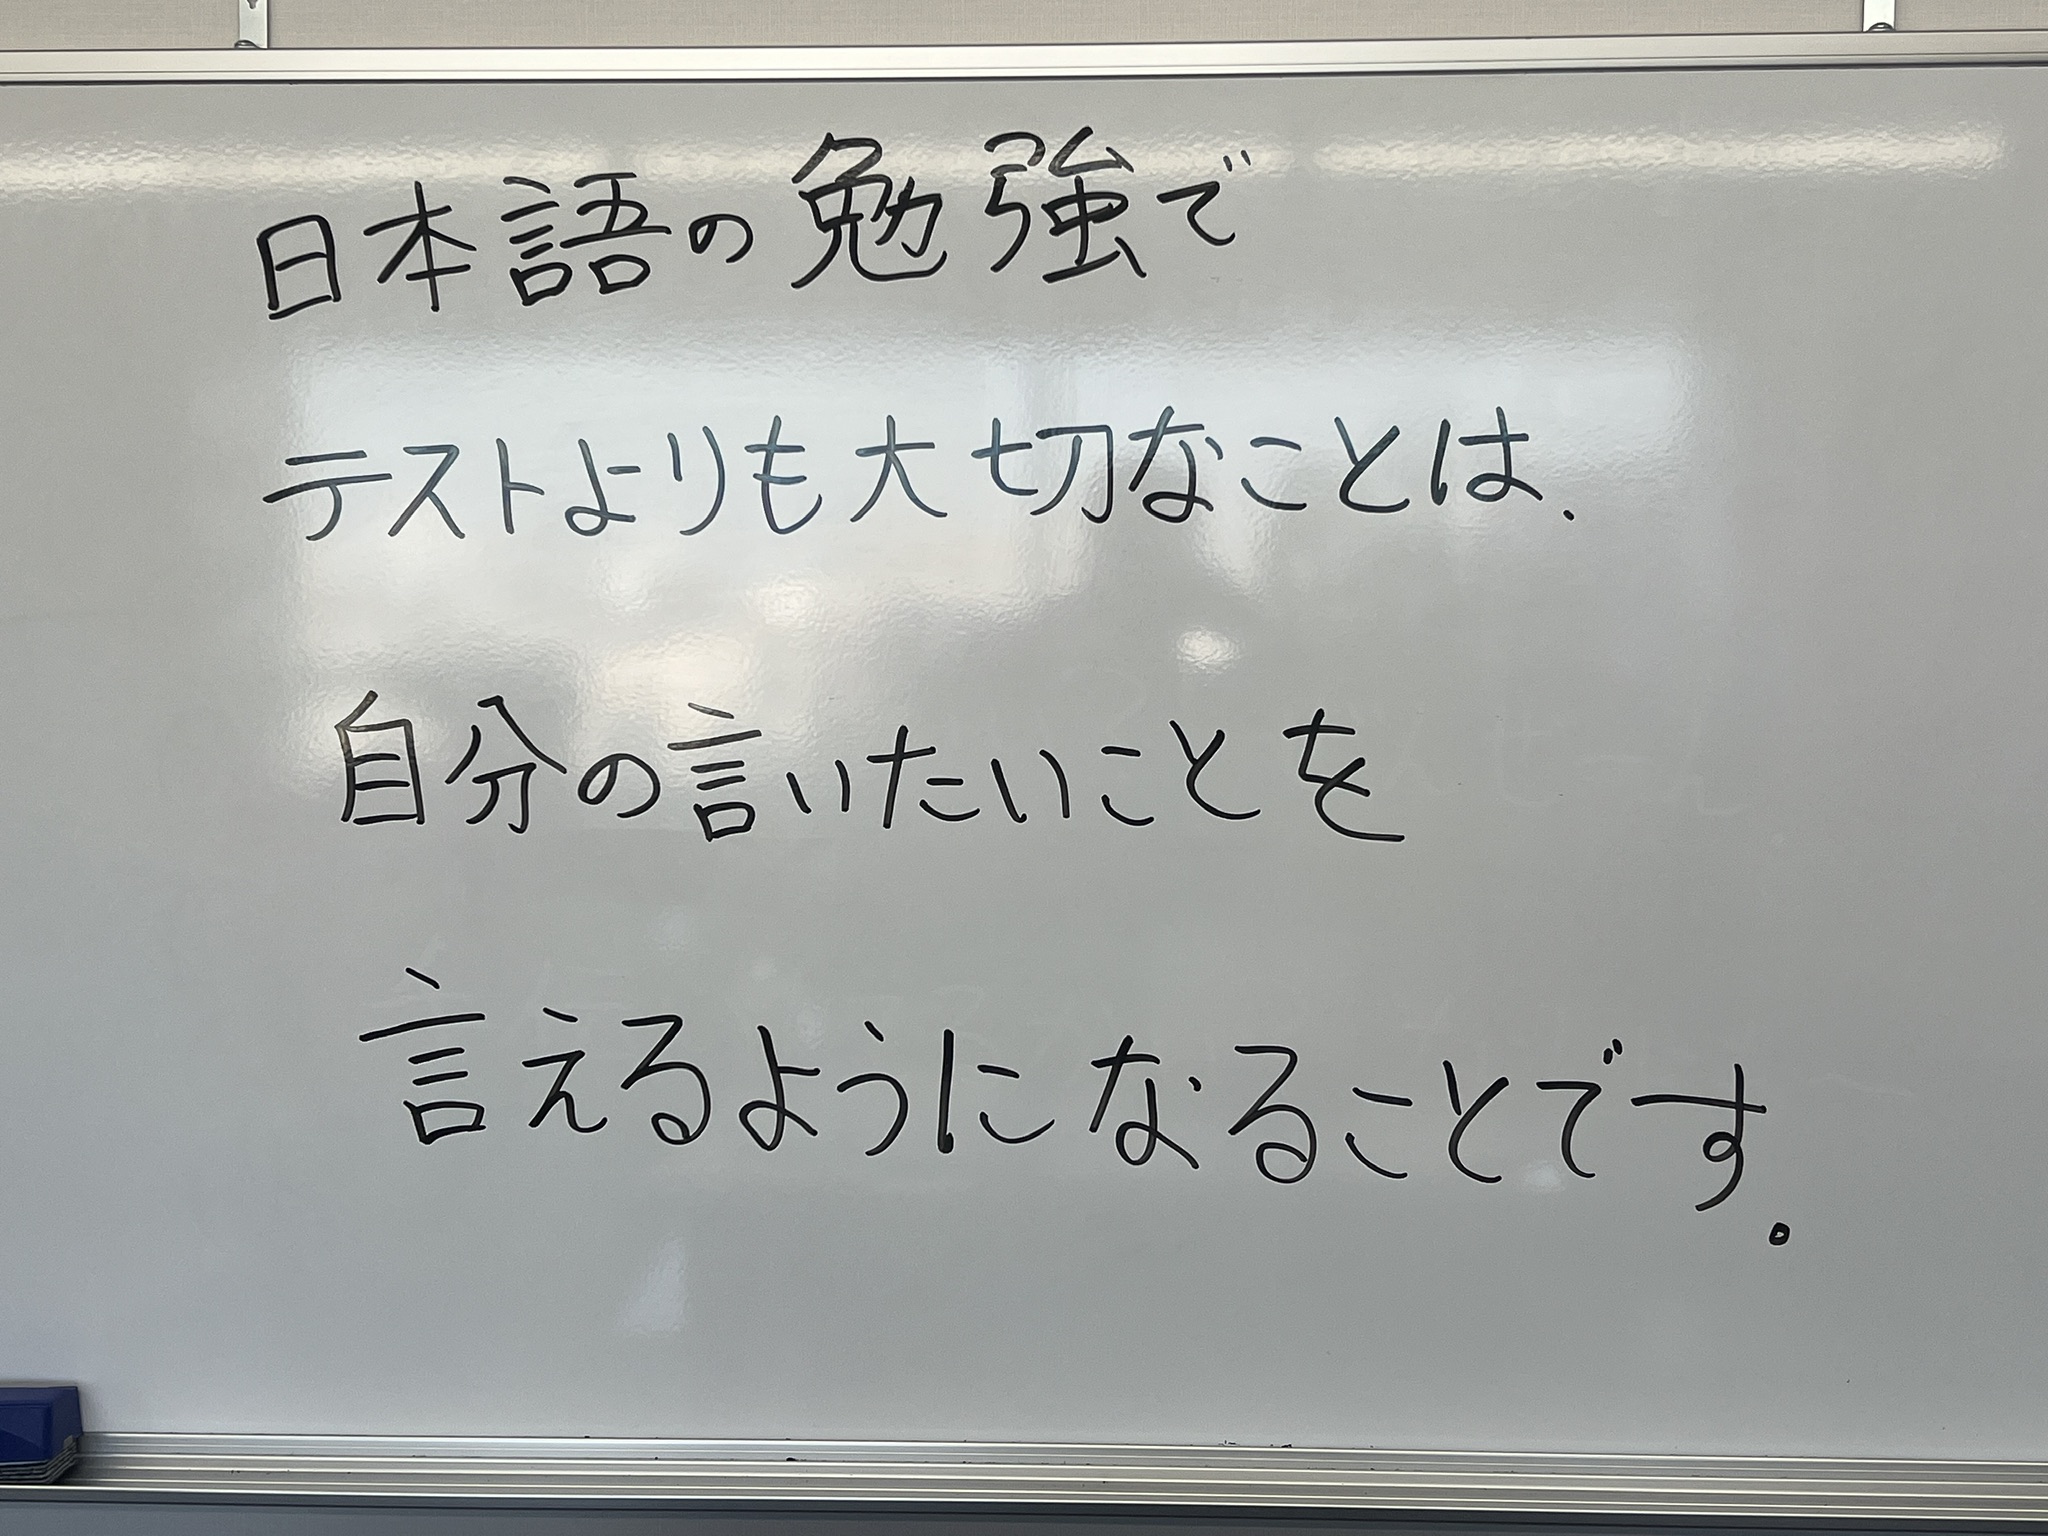 日本語の勉強で
テストよりも大切なことは、
自分の言いたいことを
言えるようになることです。